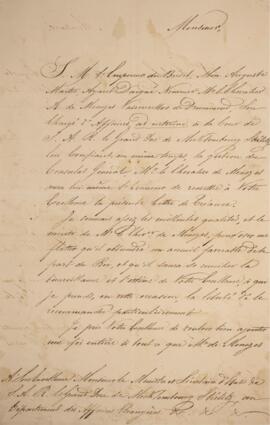 Monsieur,
S. M. l'Empereur du Brésil, Mon Auguste
Maître, ayant daigné nommer M. le Chevalier
A. de Menezes Vasconcellos de Drummond, Son
Chargé d'Affaires, ad interim à la Cour de
S. A. R. le Grand Duc de Mecklembourg Strélitz
en confiant en même temps, la gestion du
Consulat Général, Mr. le Chevalier de Menezes
aura lui même l'honneur de remettre à Votre
Excellence la présente Lettre de Créance.
Je connais assez les qualités et le
mérite de Mr. le Chev. de Menezes, pour me
flatter qu'il obtiendra un accueil favorable de la
part du Roi, et qu'il saura se concilier la
bienveillance et l'estime de Votre Excellence, à
qui je prends, en cette occasion, la liberté de le
recommander particulièrement.
Je prie Votre Excellence de vouloir bien ajouter
une foi entière à tout ce que Mr. de Menezes
A Son Excellence Monsieur le Ministre et Secrétaire d'Etat de
S. A. R. le Grand Duc de Mecklembourg Strélitz, au
Département des Affaires Etrangères &. &. &.